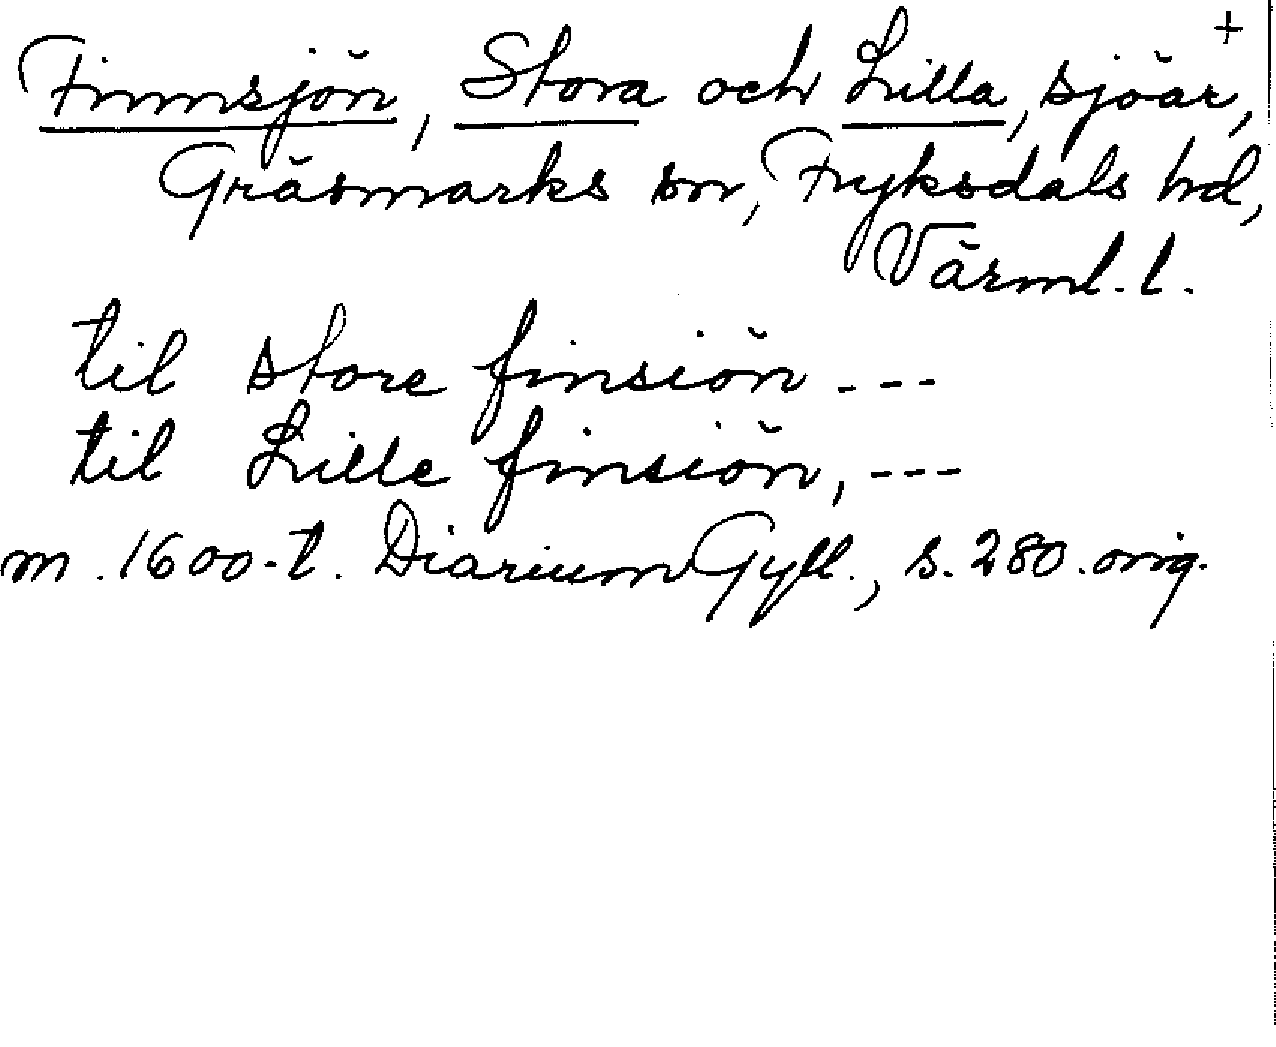 +
Finnsjön, Stora och Lilla, sjöar,
Gräsmarks sn, Fryksdals hd,
Värml. l.
til store finsiön ---
til Lille finsiön, ---
m. 1600-t. Diarium Gyll., s. 280. orig.